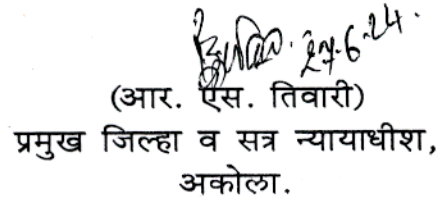 27.6.24.
(आर. एस. तिवारी)
प्रमुख जिल्हा व सत्र न्यायाधीश,
अकोला.